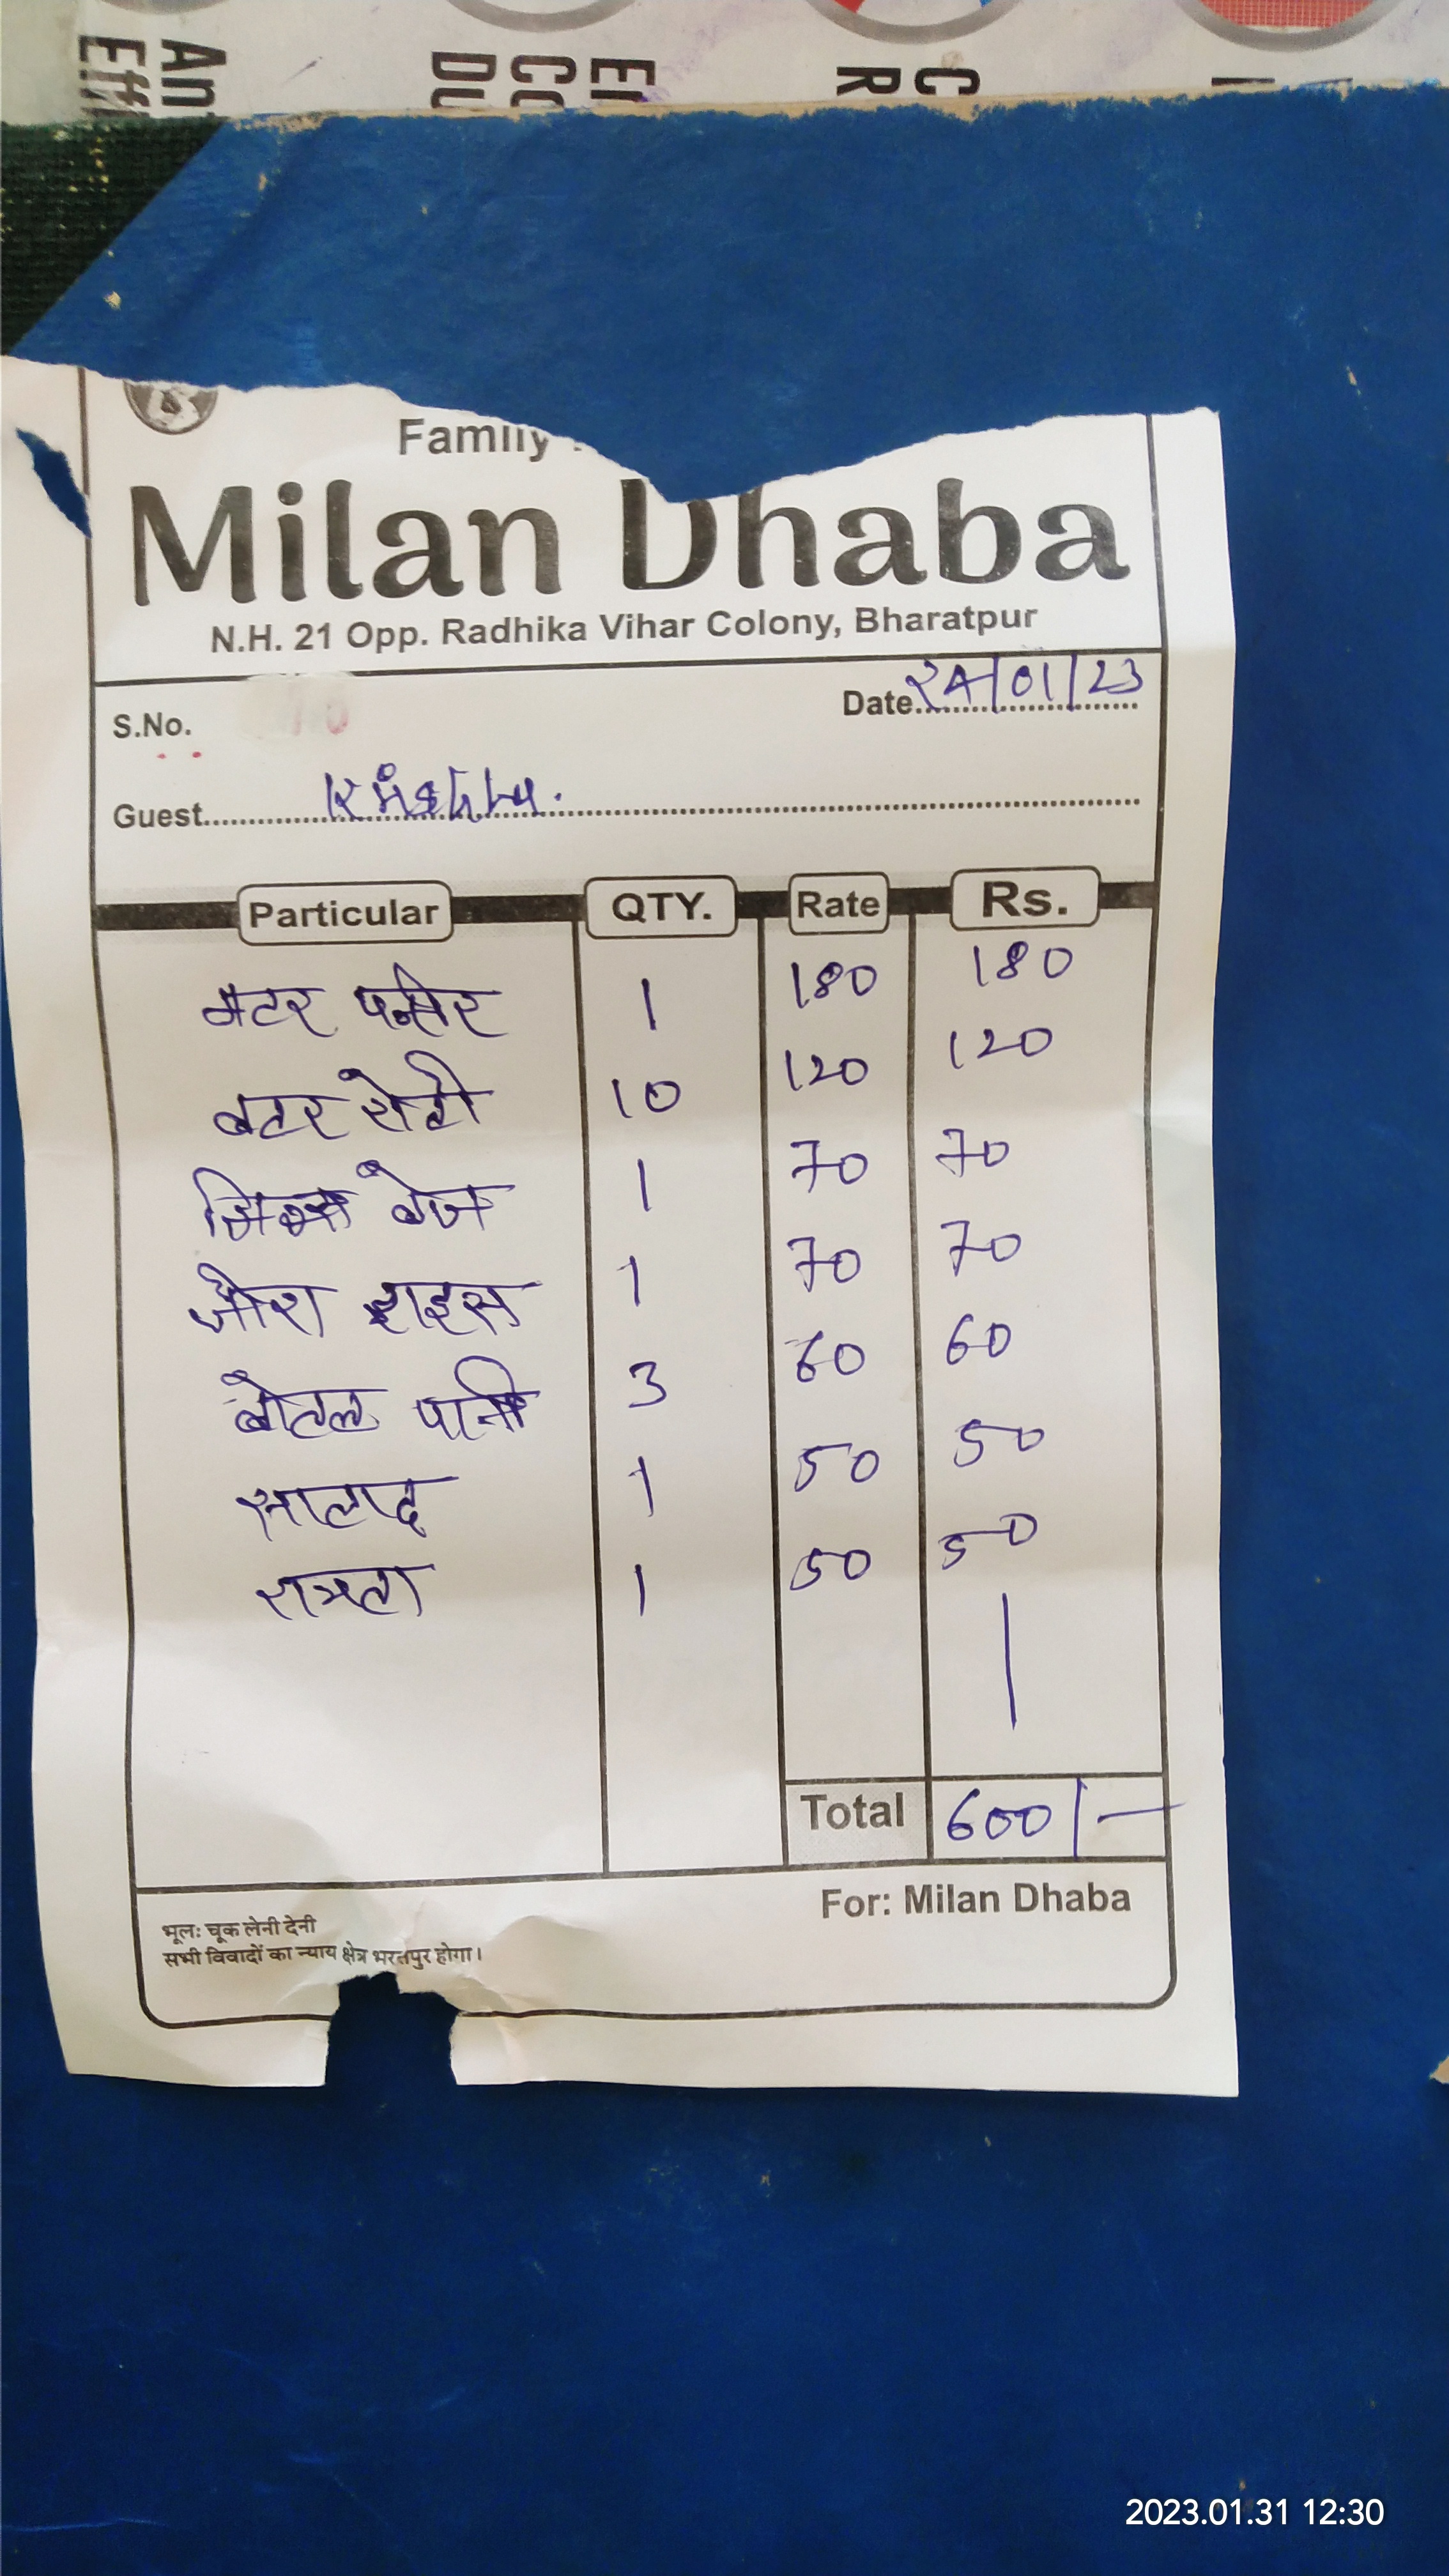 An
Eff
En
Co
Du
C
R
Family
Milan Dhaba
N.H. 21 Opp. Radhika Vihar Colony, Bharatpur
S.No. Date 24/01/23
Guest
Particular QTY. Rate Rs.
मटर पनीर 1 180 180
बटर रोटी 10 120 120
मिक्स बेज 1 70 70
जीरा राइस 1 70 70
बोतल पानी 3 60 60
सालाद 1 50 50
रायता 1 50 50
Total 600/-
For: Milan Dhaba
भूलः चूक लेनी देनी
सभी विवादों का न्याय क्षेत्र भरतपुर होगा।
2023.01.31 12:30